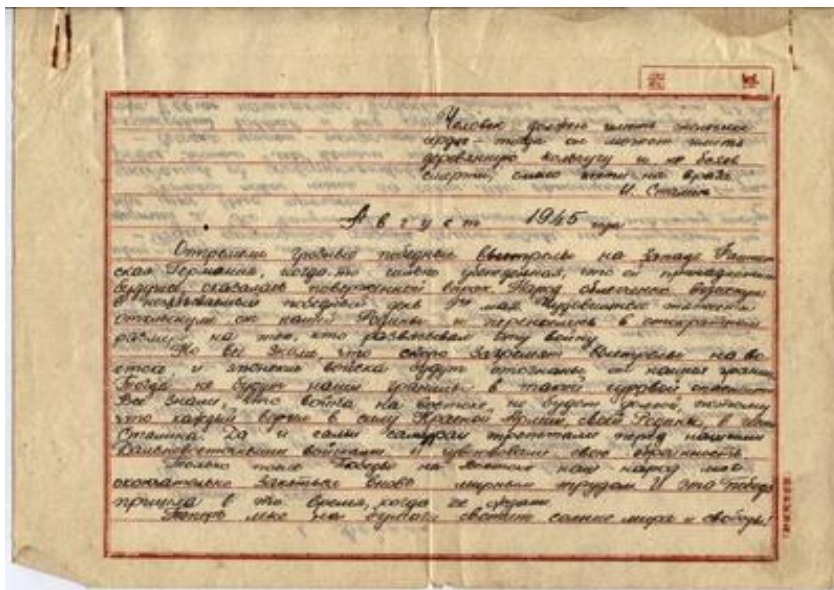 Человек должен иметь
сердце – тогда он может иметь
деревянную кольчугу и не боясь
смерти, смело идти на врага
И. Сталин
Август 1945 года
Отгремели грозные победные выстрелы на западе.
ская Германия, когда-то сильно убежденная, что ей принадлежит
будущее, оказалась поверженной в прах. Народ облегченно вздохнул
В незабываемый победный день 9го мая.
от нашей Родины и
размере на тех, кто развязывал эту войну.
Но все знали, что скоро загремят выстрелы на во
стоке, и японские войска будут отогнаны от наших границ
Тогда не будут наши границы в такой суровой опасности
Все знали, что война на востоке не будет долгой, потому
что каждый верил в силу Красной Армии, своей Родины, в
Сталина. Да и сами самураи трепетали перед нашими
Дальневосточными войсками и чувствовали свою обреченность
Только после Победы на Востоке наш народ мог
окончательно заняться вновь мирным трудом. И эта победа
пришла в то время, когда ее ждали
Теперь на светит солнце мира и свободы!